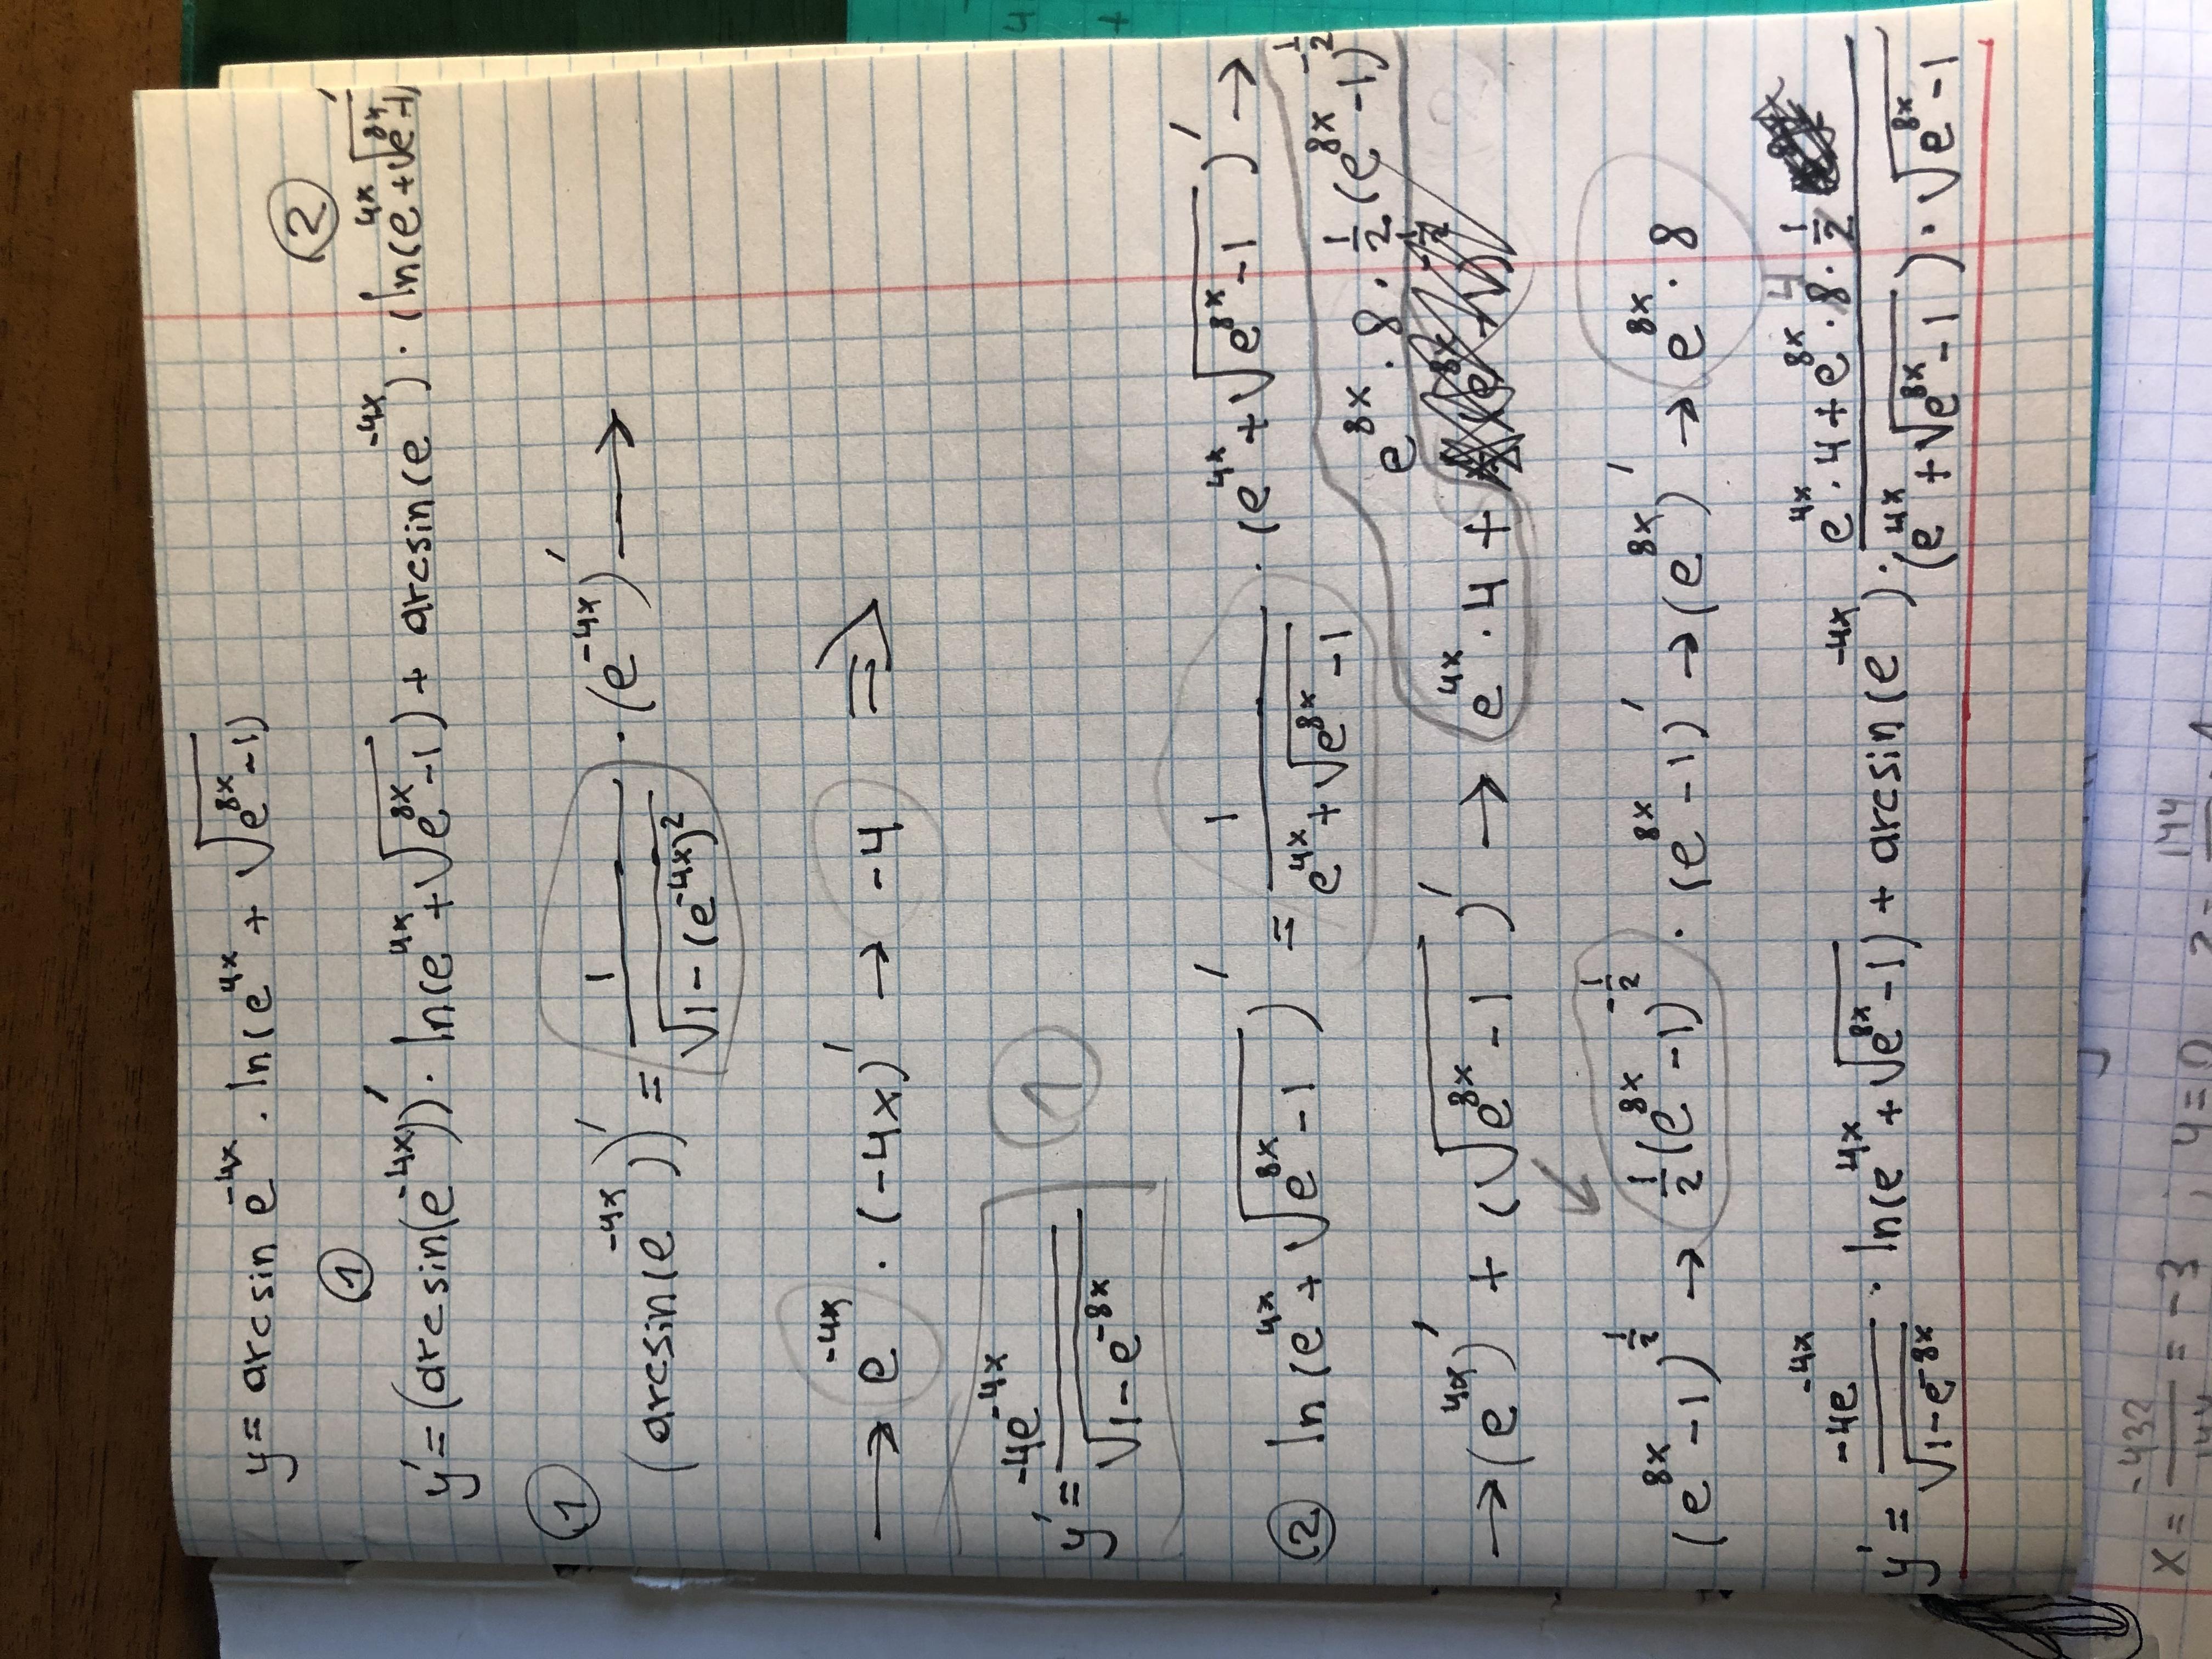 y = arcsin e^{-4x} · ln(e^{4x} + √(e^{8x} -1)
① ②
y' = (arcsin(e^{-4x}))' · ln(e^{4x} + √(e^{8x} -1) + arcsin(e^{-4x}) · (ln(e^{4x} + √(e^{8x} -1)'
① (arcsin(e^{-4x}))' = 1/√(1-(e^{-4x})^2) · (e^{-4x})' ⟶
⟶ e^{-4x} · (-4x)' → -4 ⇒
y' = -4e^{-4x}/√(1-e^{-8x}) ①
② ln(e^{4x} + √(e^{8x} -1))' = 1/(e^{4x} + √(e^{8x} -1)) · (e^{4x} + √(e^{8x} -1))' →
→ (e^{4x})' + (√(e^{8x} -1))' → e^{4x} · 4 + e^{8x} · 8 · 1/2 (e^{8x} -1)^{-1/2}
(e^{8x} -1)^{1/2} → 1/2 (e^{8x} -1)^{-1/2} · (e^{8x} -1)' → (e^{8x})' → e^{8x} · 8
y' = -4e^{-4x}/√(1-e^{-8x}) · ln(e^{4x} + √(e^{8x} -1) + arcsin(e^{-4x}) · (e^{4x} · 4 + e^{8x} · 8 · 1/2)/((e^{4x} + √(e^{8x} -1)) · √(e^{8x} -1))
4
x = -432/144 = -3 ; y = 0
144